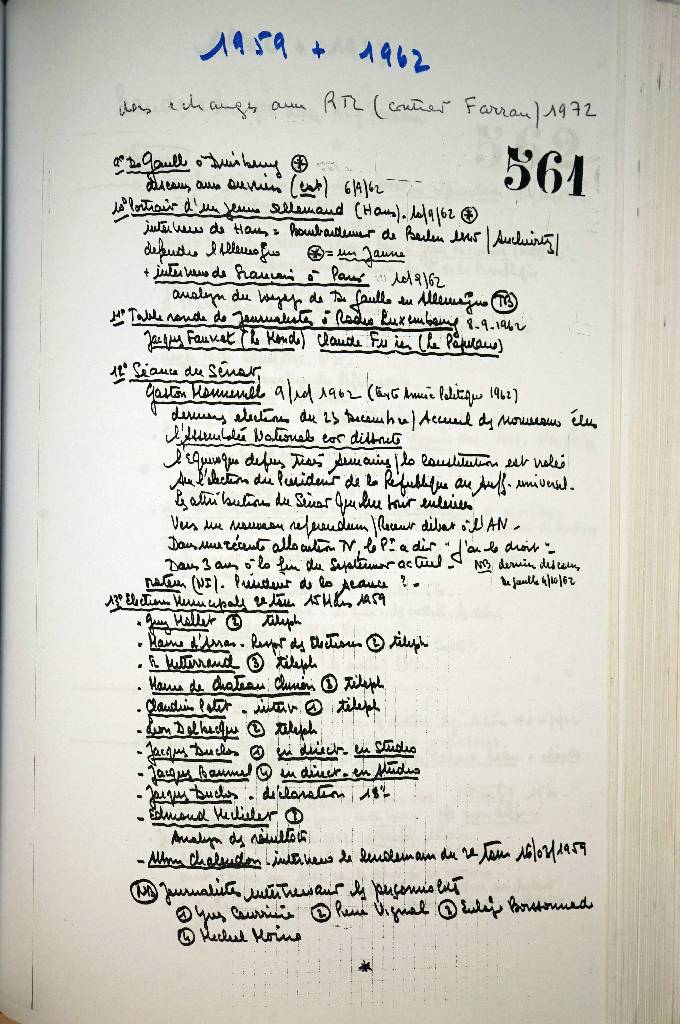 1959 + 1962
dos échanges avec RTL (courrier Farran) 1972
561
9° De Gaulle à Duisbourg ⊛
discours aux ouvriers (ext) 6/9/62
10° Portrait d'un jeune allemand (Hans). 10/9/62 ⊛
interview de Hans = Bombardement de Berlin 1945 / Auschwitz /
défendre l'Allemagne ⊛ = un Jaune
+ interview de Français à Paris 10/9/62
analyse du voyage de De Gaulle en Allemagne (NB)
11° Table ronde de Journalistes à Radio Luxembourg 8-9-1962
Jacques Fauvet (Le Monde) Claude (Le Populaire)
12° Séance du Sénat
Gaston Monnerville 9/10/1962 (texte Année Politique 1962)
élections du 23 / Accueil des nouveaux élus
l'Assemblée Nationale est dissoute
l'équivoque depuis trois semaines / la constitution est violée
sur l'élection du Président de la République au suff. universel.
Les attributions du Sénat
Vers un nouveau referendum / Récent débat à l'AN -
Dans une récente allocution TV, le Pt a dit "j'ai le droit" -
Dans 3 ans à la fin du Septennat actuel - NB dernier discours
De Gaulle 4/10/62
orateur (NI). Président de la séance ? -
13° Elections Municipales 2e tour 15 Mars 1959
- Guy Mollet ② téléph
- Mairie d'Arras - Respt des Elections ② téléph
- F. Mitterrand ③ téléph
- Mairie de Chateau Chinon ③ téléph
- Claudius Petit - interv ① téléph
- Léon Delbecque ② téléph
- Jacques Duclos ① en direct - en Studio
- Jacques Baumel ④ en direct - en studio
- Jacques Duclos - déclaration
- Edmond Michelet ③
Analyse des résultats
- Albin Chalandon - interview le lendemain du 2e tour 16/03/1959
(NB) Journalistes interviewant les personnalités
① Yves Courrière ② Pierre Vignal ③ Boissonnade
④ Michel Moine
*